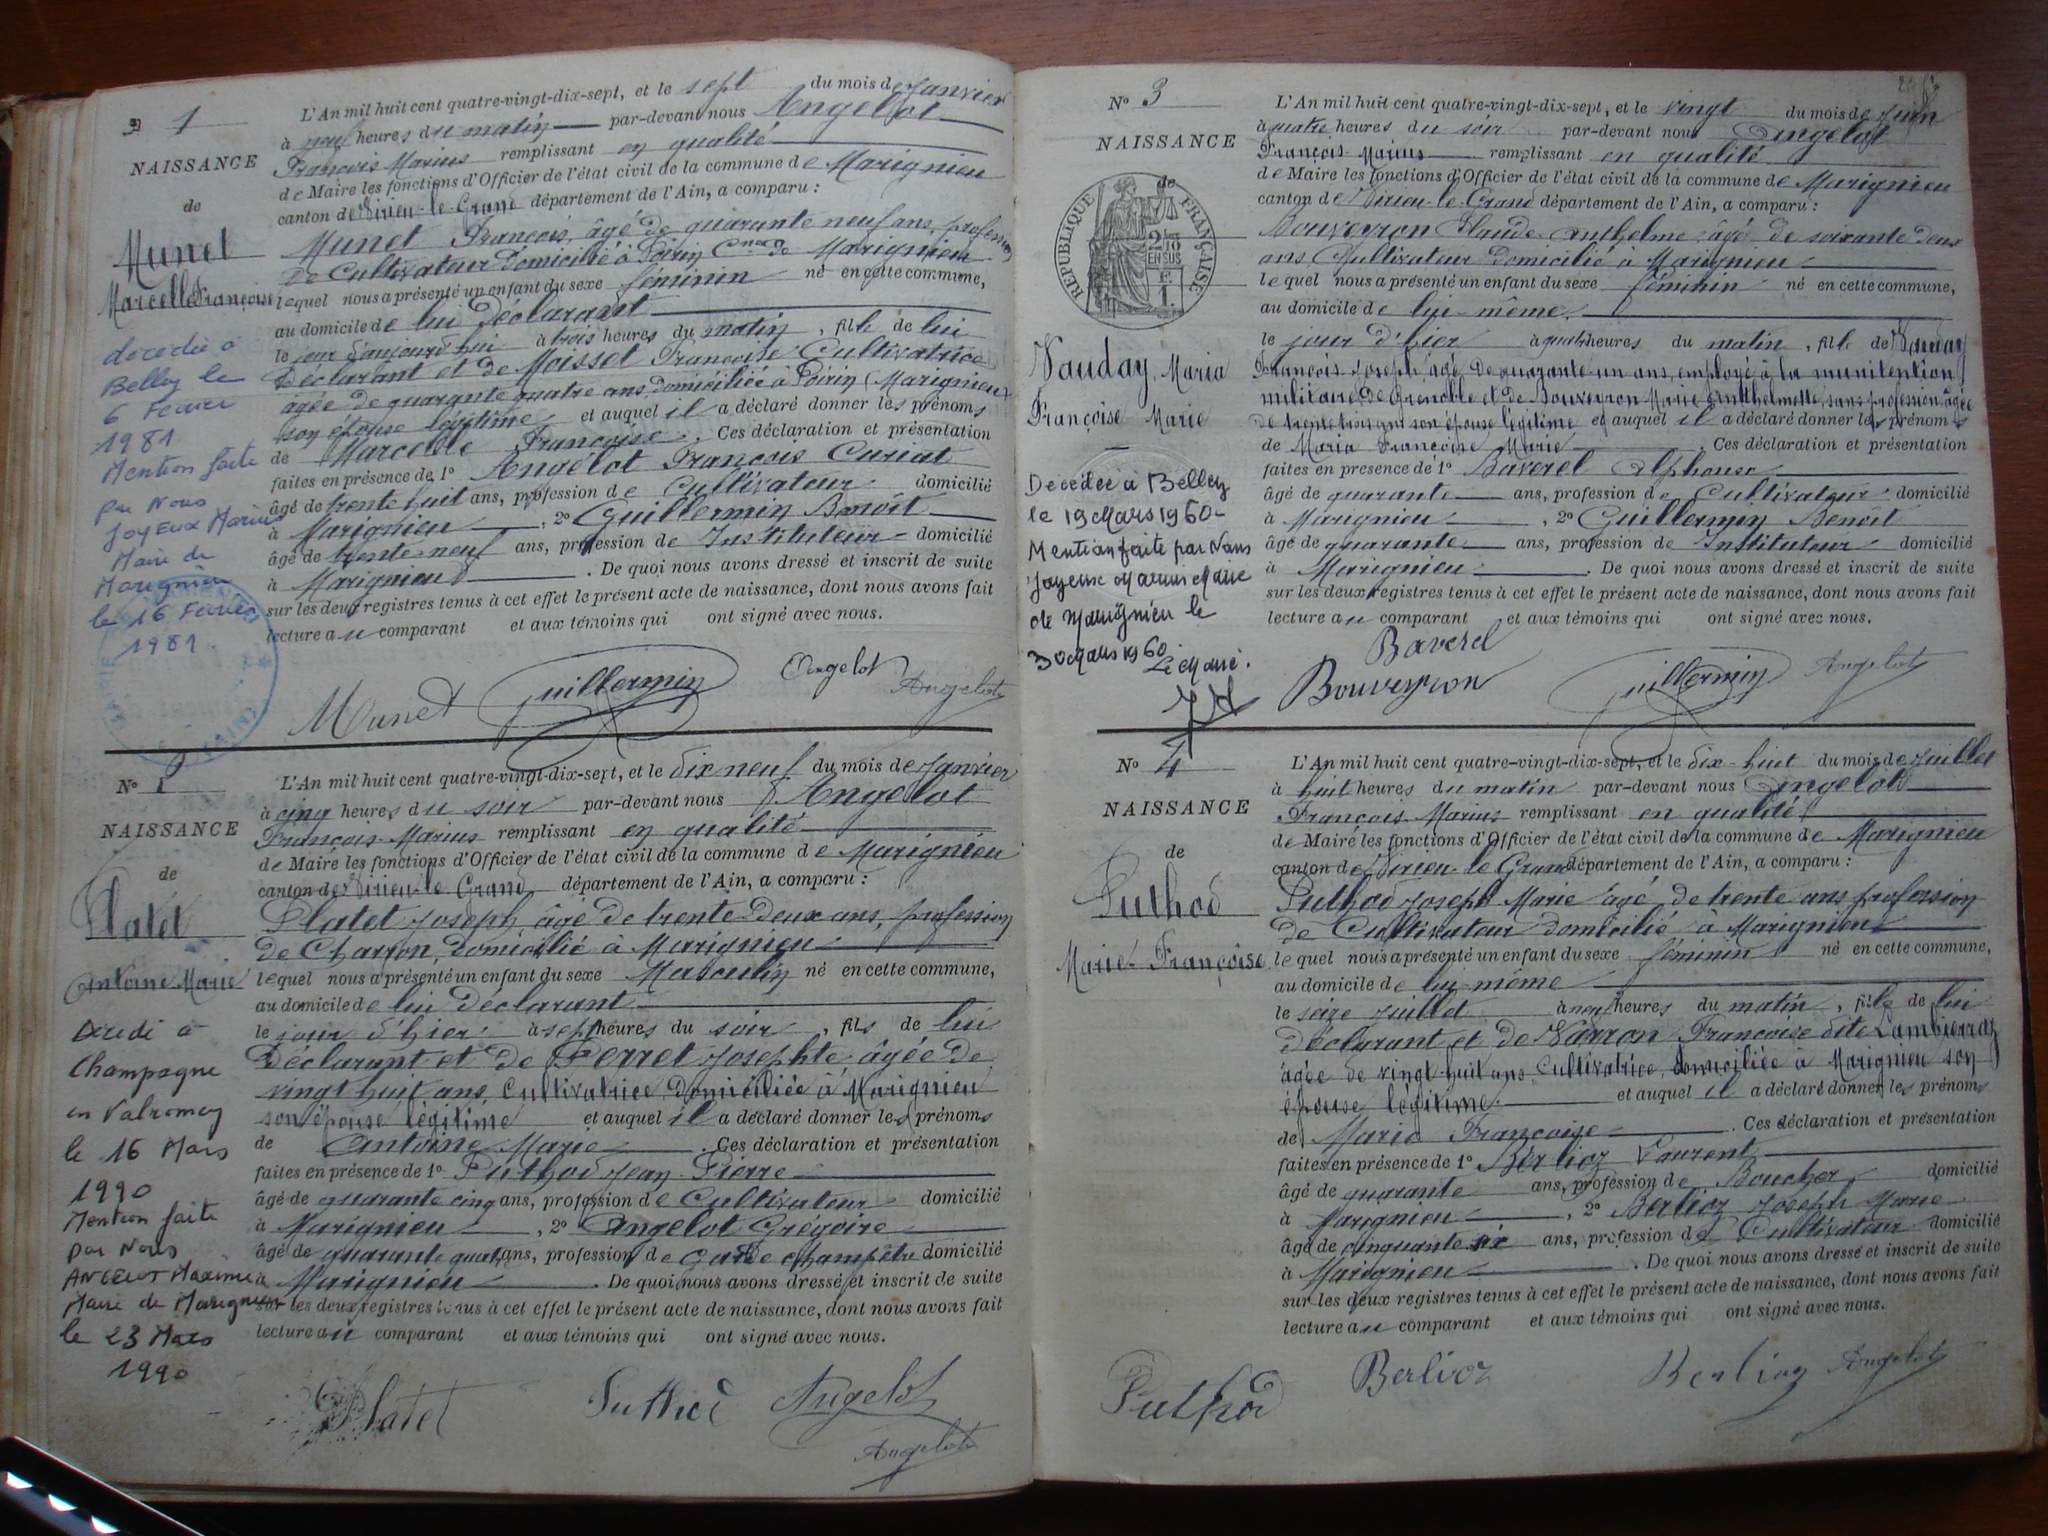 1
NAISSANCE
de
Munet
Marcelle Françoise
décédée à
Belley le
6 Fevrier
1981
Mention faite
par Nous
JOYEUX Marius
Maire de
Marignieu
le 16 Fevrier
1981.
L'An mil huit cent quatre-vingt-dix-sept, et le sept du mois de Janvier
à neuf heures du matin par-devant nous Angelot
François Marius remplissant en qualité
de Maire les fonctions d'Officier de l'état civil de la commune de Marignieu
canton de Virieu-le-Grand département de l'Ain, a comparu :
Munet François, âgé de quarante neuf ans, profession
de Cultivateur domicilié à Poirin Cne de Marignieu
lequel nous a présenté un enfant du sexe féminin né en cette commune,
au domicile de lui déclarant
le jour d'aujourd'hui à trois heures du matin, fille de lui
déclarant et de Moisset Françoise Cultivatrice
âgée de quarante quatre ans domiciliée à Poirin (Marignieu)
son épouse légitime et auquel il a déclaré donner les prénoms
de Marcelle Françoise. Ces déclaration et présentation
faites en présence de 1° Angelot François Curiat
âgé de trente huit ans, profession de Cultivateur domicilié
à Marignieu, 2° Guillermin Benoît
âgé de trente-neuf ans, profession de Instituteur domicilié
à Marignieu. De quoi nous avons dressé et inscrit de suite
sur les deux registres tenus à cet effet le présent acte de naissance, dont nous avons fait
lecture au comparant et aux témoins qui ont signé avec nous.
Munet Guillermin Angelot Angelot
N° 1
NAISSANCE
de
Platet
Antoine Marie
Décédé à
Champagne
en Valromey
le 16 Mars
1990
Mention faite
par Nous
ANGELOT Maxime
Maire de Marignieu
le 23 Mars
1990
L'An mil huit cent quatre-vingt-dix-sept, et le dix neuf du mois de Janvier
à cinq heures du soir par-devant nous Angelot
François Marius remplissant en qualité
de Maire les fonctions d'Officier de l'état civil de la commune de Marignieu
canton de Virieu-le-Grand département de l'Ain, a comparu :
Platet Joseph, âgé de trente-deux ans, profession
de Charron, domicilié à Marignieu
lequel nous a présenté un enfant du sexe Masculin né en cette commune,
au domicile de lui déclarant
le jour d'hier à sept heures du soir, fils de lui
déclarant et de Ferret Josephte âgée de
vingt huit ans, Cultivatrice domiciliée à Marignieu
son épouse légitime et auquel il a déclaré donner les prénoms
de Antoine Marie. Ces déclaration et présentation
faites en présence de 1° Puthod Jean Pierre
âgé de quarante cinq ans, profession de Cultivateur domicilié
à Marignieu, 2° Angelot Grégoire
âgé de quarante quatre ans, profession de Garde champêtre domicilié
à Marignieu. De quoi nous avons dressé et inscrit de suite
sur les deux registres tenus à cet effet le présent acte de naissance, dont nous avons fait
lecture au comparant et aux témoins qui ont signé avec nous.
Platet Puthod Angelot
Angelot
N° 3
NAISSANCE
de
RÉPUBLIQUE FRANÇAISE
2/10
EN SUS
1 F.
Vauday, Maria
Françoise Marie
Décédée à Belley
le 19 Mars 1960-
Mention faite par Nous
Joyeux Marius Maire
de Marignieu le
30 Mars 1960
Le Maire.
L'An mil huit cent quatre-vingt-dix-sept, et le vingt du mois de Juin
à quatre heures du soir par-devant nous Angelot
François Marius remplissant en qualité
de Maire les fonctions d'Officier de l'état civil de la commune de Marignieu
canton de Virieu-le-Grand département de l'Ain, a comparu :
Bouveyron Claude Anthelme âgé de soixante deux
ans, Cultivateur domicilié à Marignieu
lequel nous a présenté un enfant du sexe féminin né en cette commune,
au domicile de lui-même.
le jour d'hier à quatre heures du matin, fille de Vauday
François Joseph, âgé de quarante un ans, employé à la munitention
militaire de Grenoble et de Bouveyron Marie Anthelmette, sans profession âgée
de trente trois ans son épouse légitime et auquel il a déclaré donner les prénoms
de Maria Françoise Marie. Ces déclaration et présentation
faites en présence de 1° Baverel Alphonse
âgé de quarante ans, profession de Cultivateur domicilié
à Marignieu, 2° Guillermin Benoît
âgé de quarante ans, profession de Instituteur domicilié
à Marignieu. De quoi nous avons dressé et inscrit de suite
sur les deux registres tenus à cet effet le présent acte de naissance, dont nous avons fait
lecture au comparant et aux témoins qui ont signé avec nous.
Baverel
Bouveyron Guillermin Angelot
N° 4
NAISSANCE
de
Puthod
Marie-Françoise
L'An mil huit cent quatre-vingt-dix-sept, et le dix-huit du mois de Juillet
à huit heures du matin par-devant nous Angelot
François Marius remplissant en qualité
de Maire les fonctions d'Officier de l'état civil de la commune de Marignieu
canton de Virieu-le-Grand département de l'Ain, a comparu :
Puthod Joseph Marie âgé de trente ans profession
de Cultivateur domicilié à Marignieu
lequel nous a présenté un enfant du sexe féminin né en cette commune,
au domicile de lui-même
le seize juillet à neuf heures du matin, fille de lui
déclarant et de Varron Françoise dite Lambierroz
âgée de vingt huit ans, Cultivatrice, domiciliée à Marignieu son
épouse légitime. et auquel il a déclaré donner les prénoms
de Marie Françoise. Ces déclaration et présentation
faites en présence de 1° Berlioz Laurent
âgé de quarante ans, profession de Boucher domicilié
à Marignieu, 2° Berlioz Joseph Marie
âgé de cinquante six ans, profession de Cultivateur domicilié
à Marignieu. De quoi nous avons dressé et inscrit de suite
sur les deux registres tenus à cet effet le présent acte de naissance, dont nous avons fait
lecture au comparant et aux témoins qui ont signé avec nous.
Puthod Berlioz Berlioz Angelot